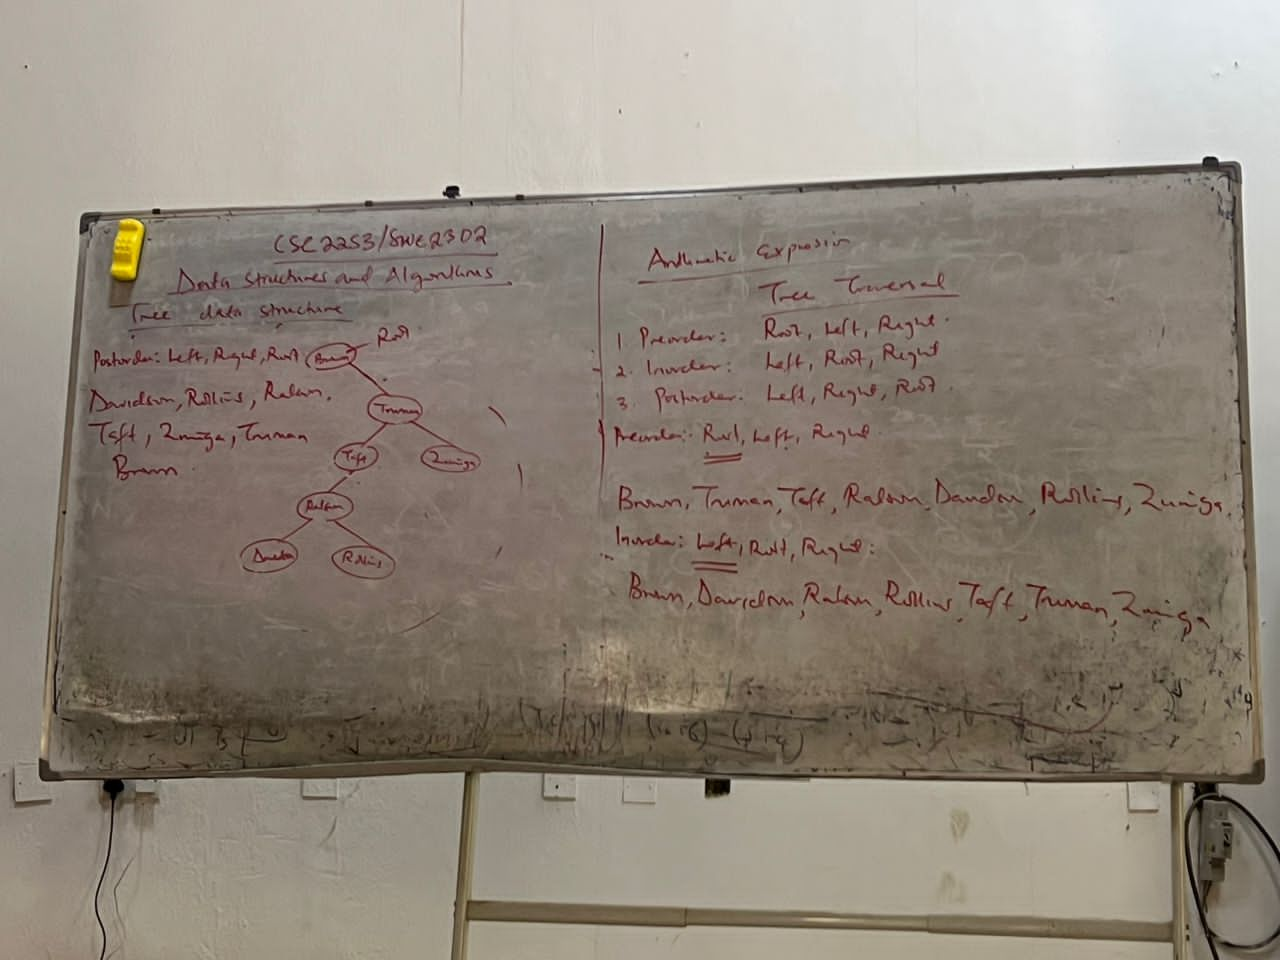 CSC2253/SWE2302
Data Structures and Algorithms
Tree data structure
Postorder: Left, Right, Root
Davidson, Rollins, Ralson,
Taft, Zuniga, Truman
Brown
Root
Brown
Truman
Taft
Zuniga
Ralson
Rollins
Arithmetic Expression
Tree Traversal
1. Preorder: Root, Left, Right.
2. Inorder: Left, Root, Right
3. Postorder: Left, Right, Root.
Preorder: Root, Left, Right.
Brown, Truman, Taft, Ralson, Davidson, Rollins, Zuniga.
Inorder: Left, Root, Right:
Brown, Davidson, Ralson, Rollins, Taft, Truman, Zuniga